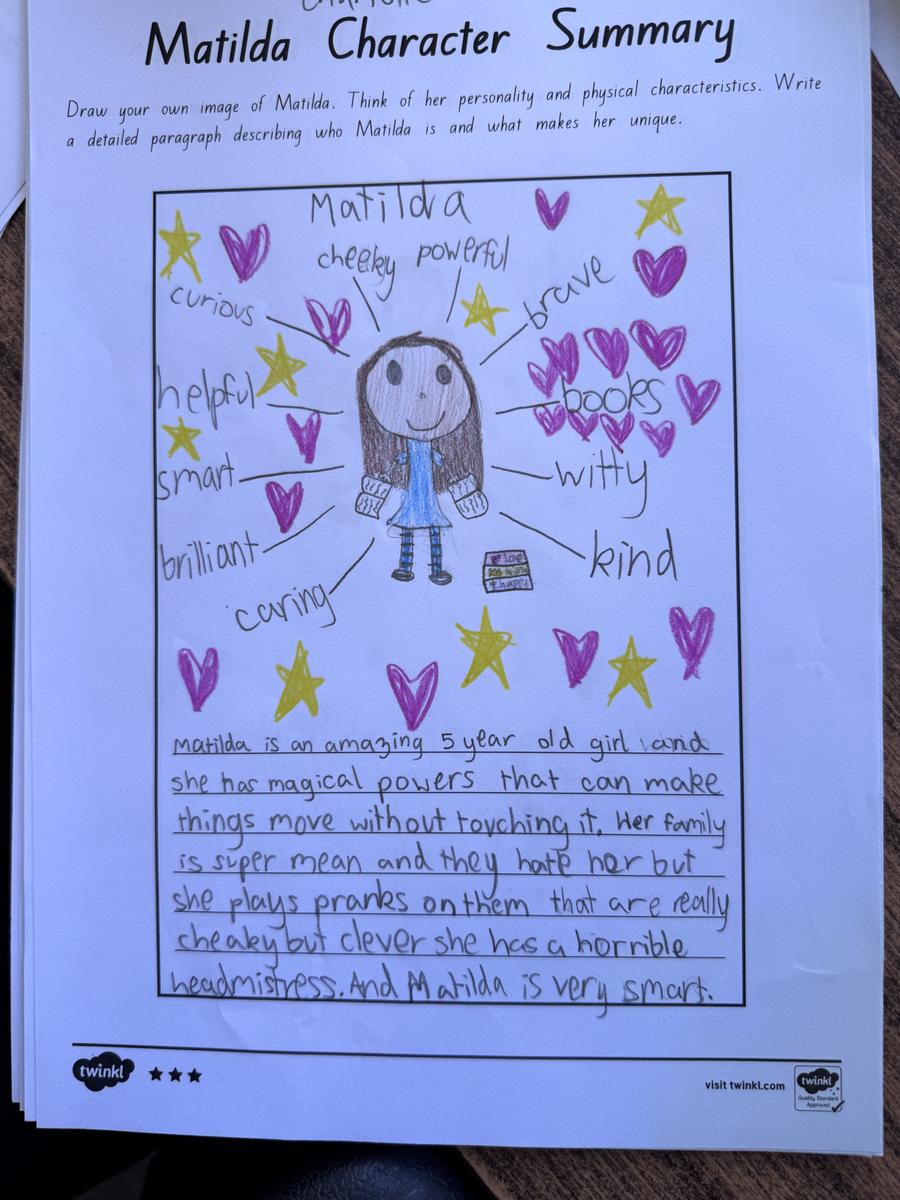 Matilda Character Summary
Draw your own image of Matilda. Think of her personality and physical characteristics. Write
a detailed paragraph describing who Matilda is and what makes her unique.
Matilda
cheeky powerful
curious
brave
helpful
books
smart
witty
brilliant
kind
caring
Matilda is an amazing 5 year old girl and
she has magical powers that can make
things move without touching it. Her family
is super mean and they hate her but
she plays pranks on them that are really
cheaky but clever she has a horrible
headmistress. And Matilda is very smart.
twinkl
visit twinkl.com
twinkl
Quality Standard
Approved